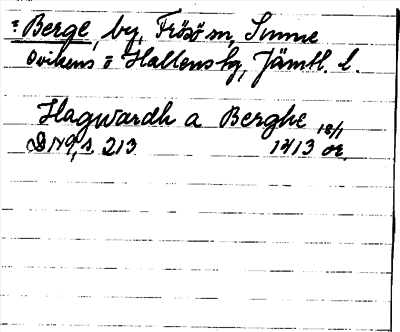 : Berge, by, Frösö sn, Sunne
Ovikens o Hallens tg, Jämtl. l.
Hagwardh a Berghe 18/1
DN 9, s. 213 1413 or.